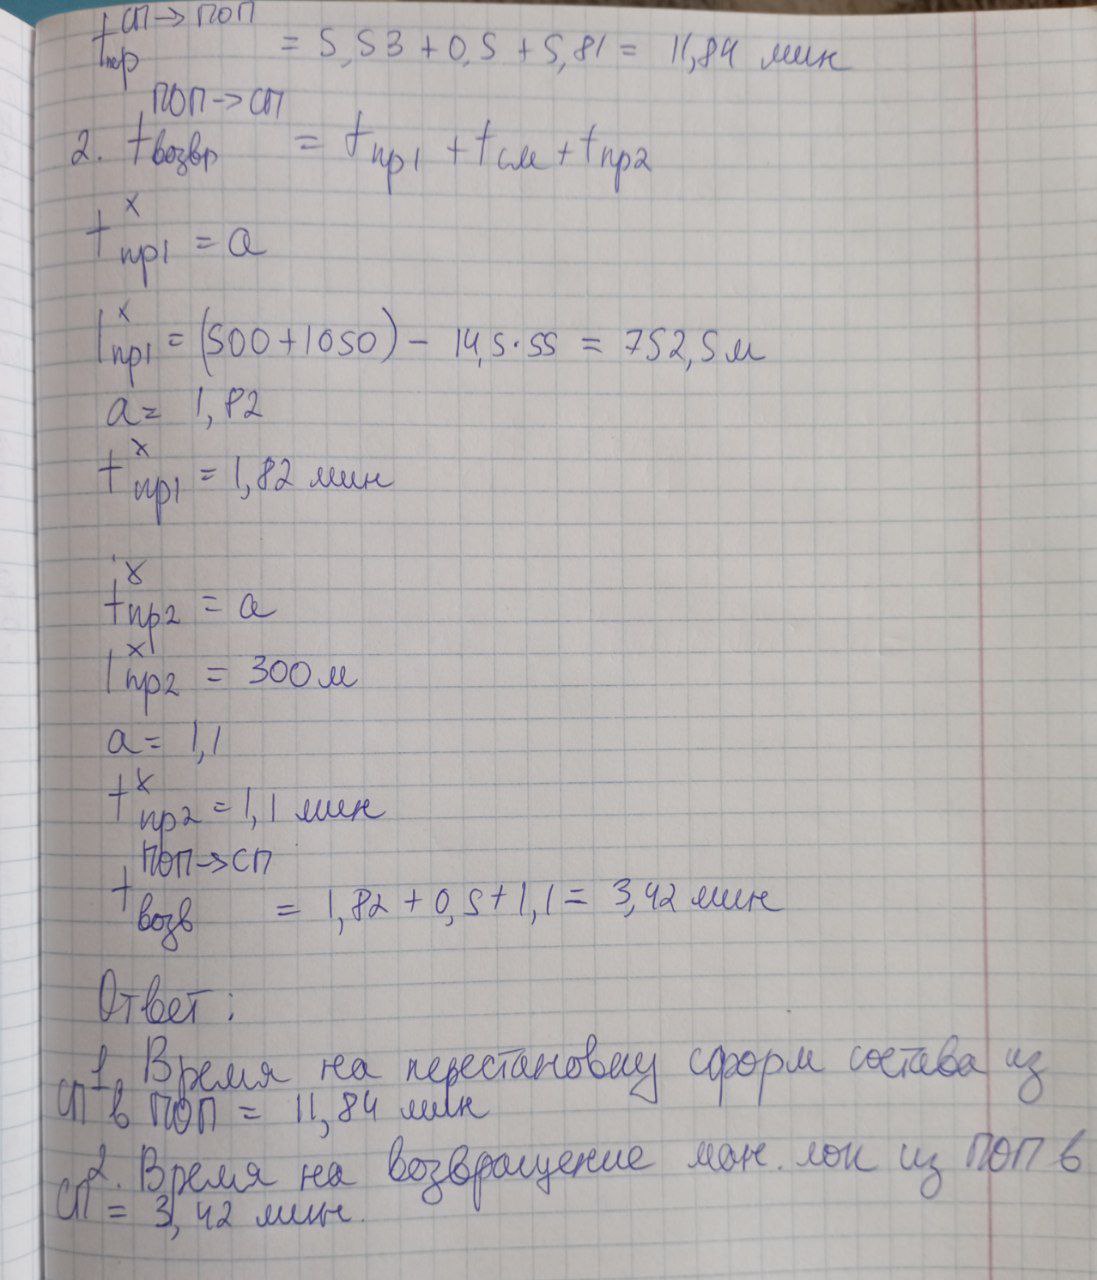 t пер СП→ПОП = 5,53 + 0,5 + 5,81 = 11,84 мин
2. t возвр ПОП→СП = t пр1 + t см + t пр2
t пр1 х = a
l пр1 х = (500+1050) - 14,5·55 = 752,5 м
a = 1,82
t пр1 х = 1,82 мин
t пр2 х = a
l пр2 х = 300 м
a = 1,1
t пр2 х = 1,1 мин
t возв ПОП→СП = 1,82 + 0,5 + 1,1 = 3,42 мин
Ответ:
1. Время на перестановку сформ состава из
СП в ПОП = 11,84 мин
2. Время на возвращение ман. лок из ПОП в
СП = 3,42 мин.